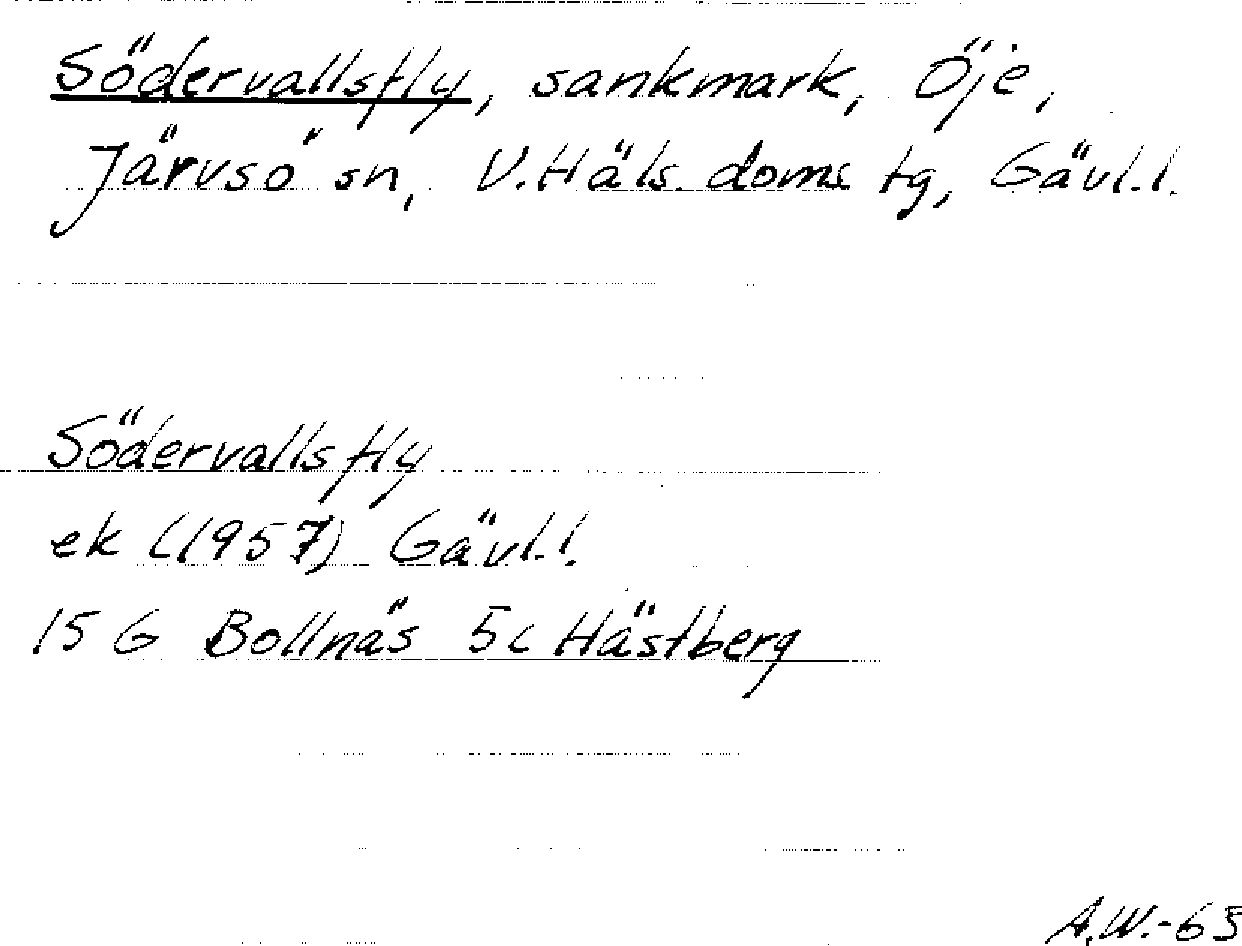 Södervallsfly, sankmark, Öje,
Järvsö sn, V. Häls. doms. tg, Gävl. l.
Södervallsfly
ek (1957) Gävl. l.
15 G Bollnäs 5c Hästberg
A.W.-63